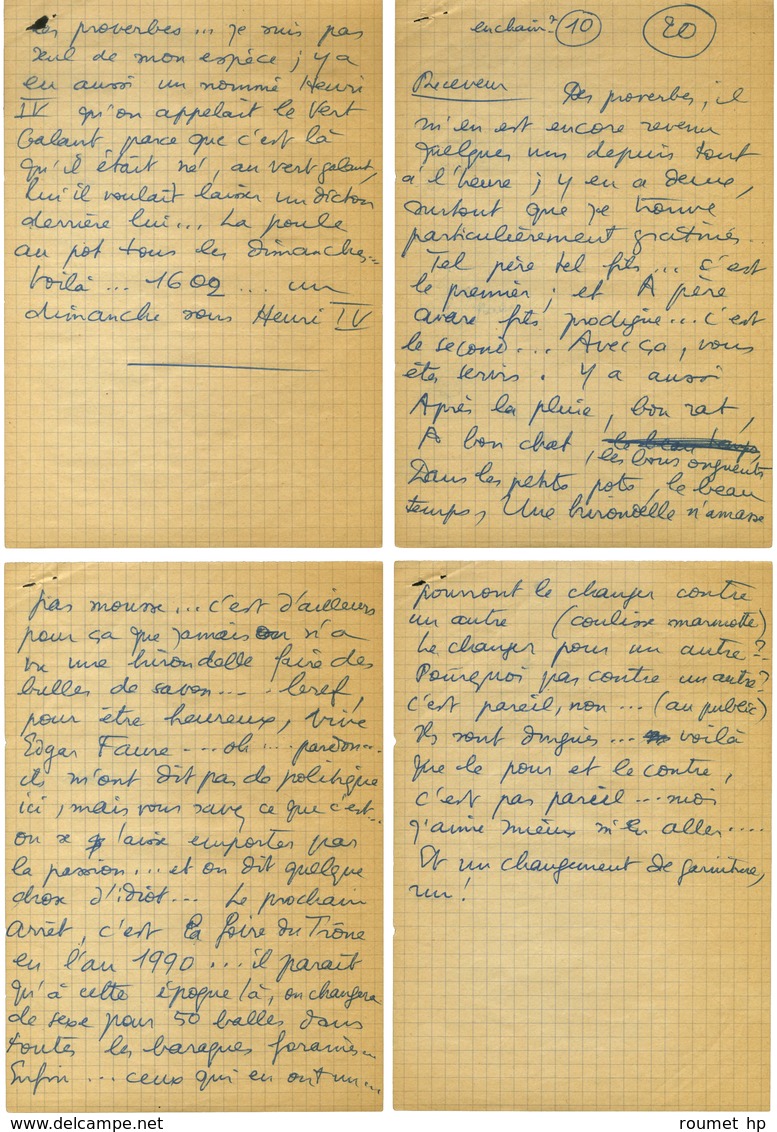 Les proverbes... je suis pas
seul de mon espèce ; y a
eu aussi un nommé Henri
IV qu'on appelait le Vert
Galant parce que c'est là
qu'il était né, au vert galant,
lui il voulait laisser un dicton
derrière lui... La poule
au pot tous les dimanches...
Voilà... 1602... un
dimanche sous Henri IV
enchain.t 10 20
Receveur Des proverbes, il
m'en est encore revenu
quelques uns depuis tout
à l'heure ; y en a deux,
surtout que je trouve
particulièrement gratinés.
Tel père tel fils... c'est
le premier ; et A père
avare fils prodigue... c'est
le second... Avec ça, vous
êtes servis. Y a aussi
Après la pluie, bon rat,
A bon chat, le beau temps,
les bons onguents
Dans les petits pots, le beau
temps, Une hirondelle n'amasse
pas mousse... c'est d'ailleurs
pour ça que jamais on n'a
vu une hirondelle faire des
bulles de savon... bref,
pour être heureux, vive
Edgar Faure... oh... pardon...
ils m'ont dit pas de politique
ici, mais vous savez ce que c'est..
on se laisse emporter par
la passion... et on dit quelque
chose d'idiot... Le prochain
arrêt, c'est la foire du Trône
en l'an 1990... il paraît
qu'à cette époque là, on changera
de sexe pour 50 balles dans
toutes les baraques foraines...
Enfin... ceux qui en ont un...
pourront le changer contre
un autre (coulisse marmotte)
Le changer pour un autre ?
Pourquoi pas contre un autre ?
c'est pareil, non... (au public)
Ils sont dingues... voilà
que le pour et le contre,
c'est pas pareil... moi
j'aime mieux m'en aller....
Et un changement de garniture,
un !
roumet hp